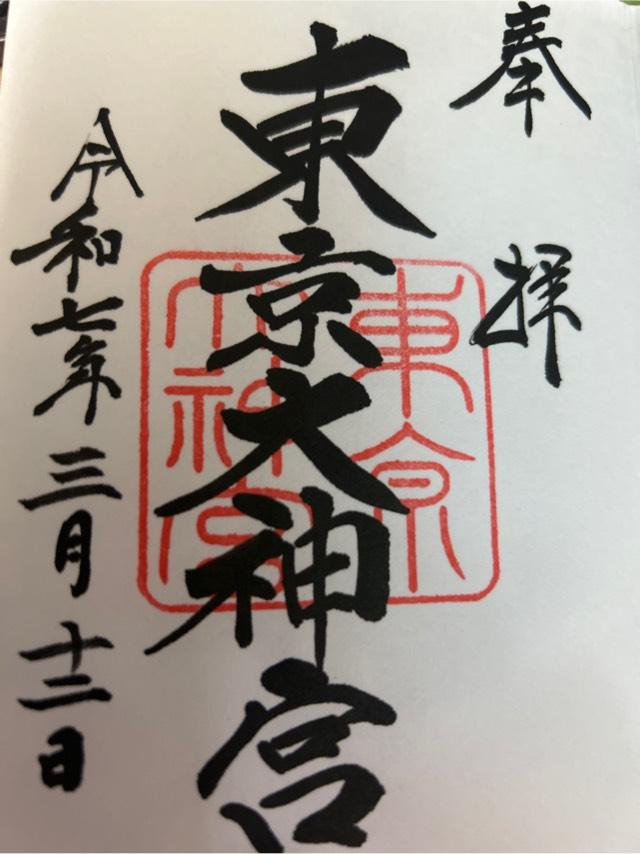 奉拝
東京大神宮
東京
大神宮
令和七年三月十二日